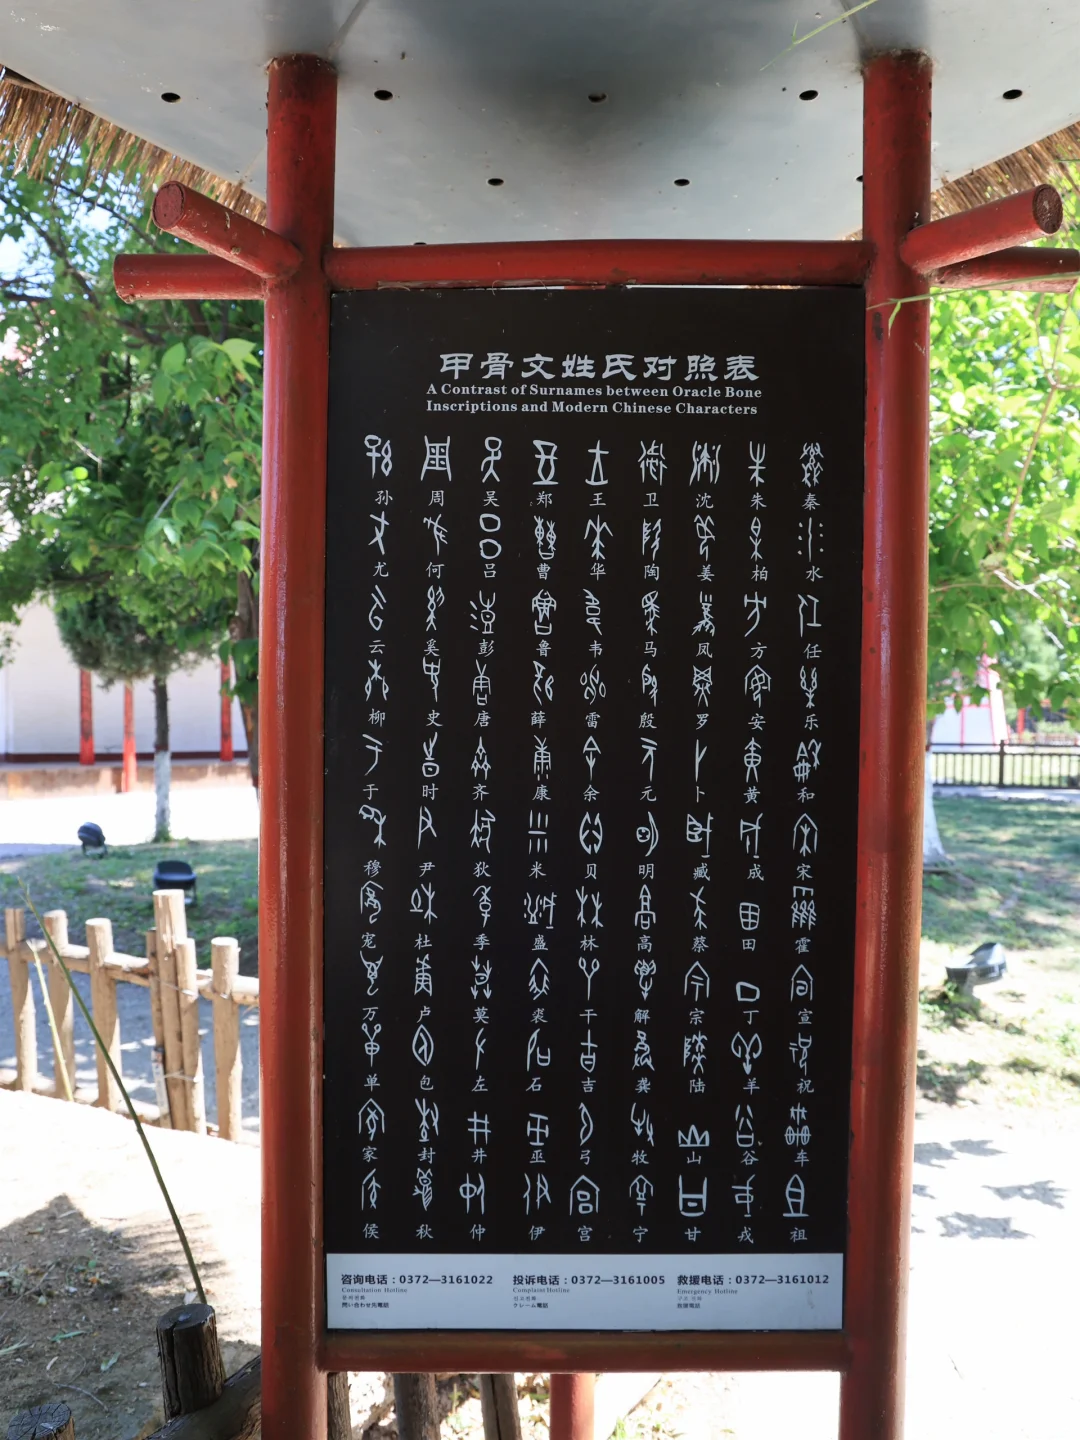 甲骨文姓氏对照表
A Contrast of Surnames between Oracle Bone
Inscriptions and Modern Chinese Characters
孙 周 吴 郑 王 卫 沈 朱 秦
尤 何 吕 曹 华 陶 姜 柏 水
云 奚 彭 鲁 韦 马 凤 方 任
柳 史 唐 薛 雷 殷 罗 安 乐
于 时 齐 康 余 元 卜 黄 和
穆 尹 狄 米 贝 明 臧 成 宋
宠 杜 季 盛 林 高 蔡 田 霍
万 卢 莫 裘 干 解 宗 丁 宣
单 包 左 石 吉 龚 陆 羊 祝
家 封 井 巫 弓 牧 山 谷 车
侯 秋 仲 伊 宫 宁 甘 戎 祖
咨询电话：0372—3161022 投诉电话：0372—3161005 救援电话：0372—3161012
Consultation Hotline Complaint Hotline Emergency Hotline
問い合わせ先電話 クレーム電話 救援電話